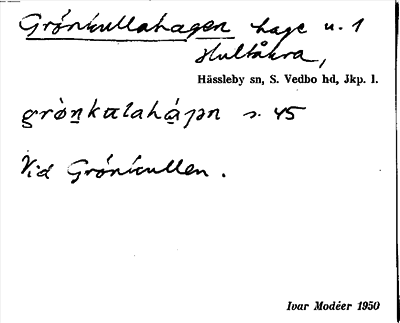 Grónkullahagen hage u. 1
Hultåkra,
Hässleby sn, S. Vedbo hd, Jkp. l.
s. 45
Vid Grónkullen.
Ivar Modéer 1950